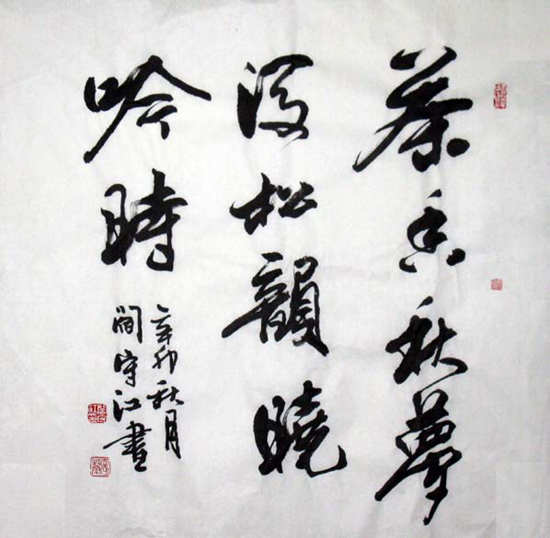 茶香秋夢
後松韻曉
吟時
辛卯秋月
閻守江書